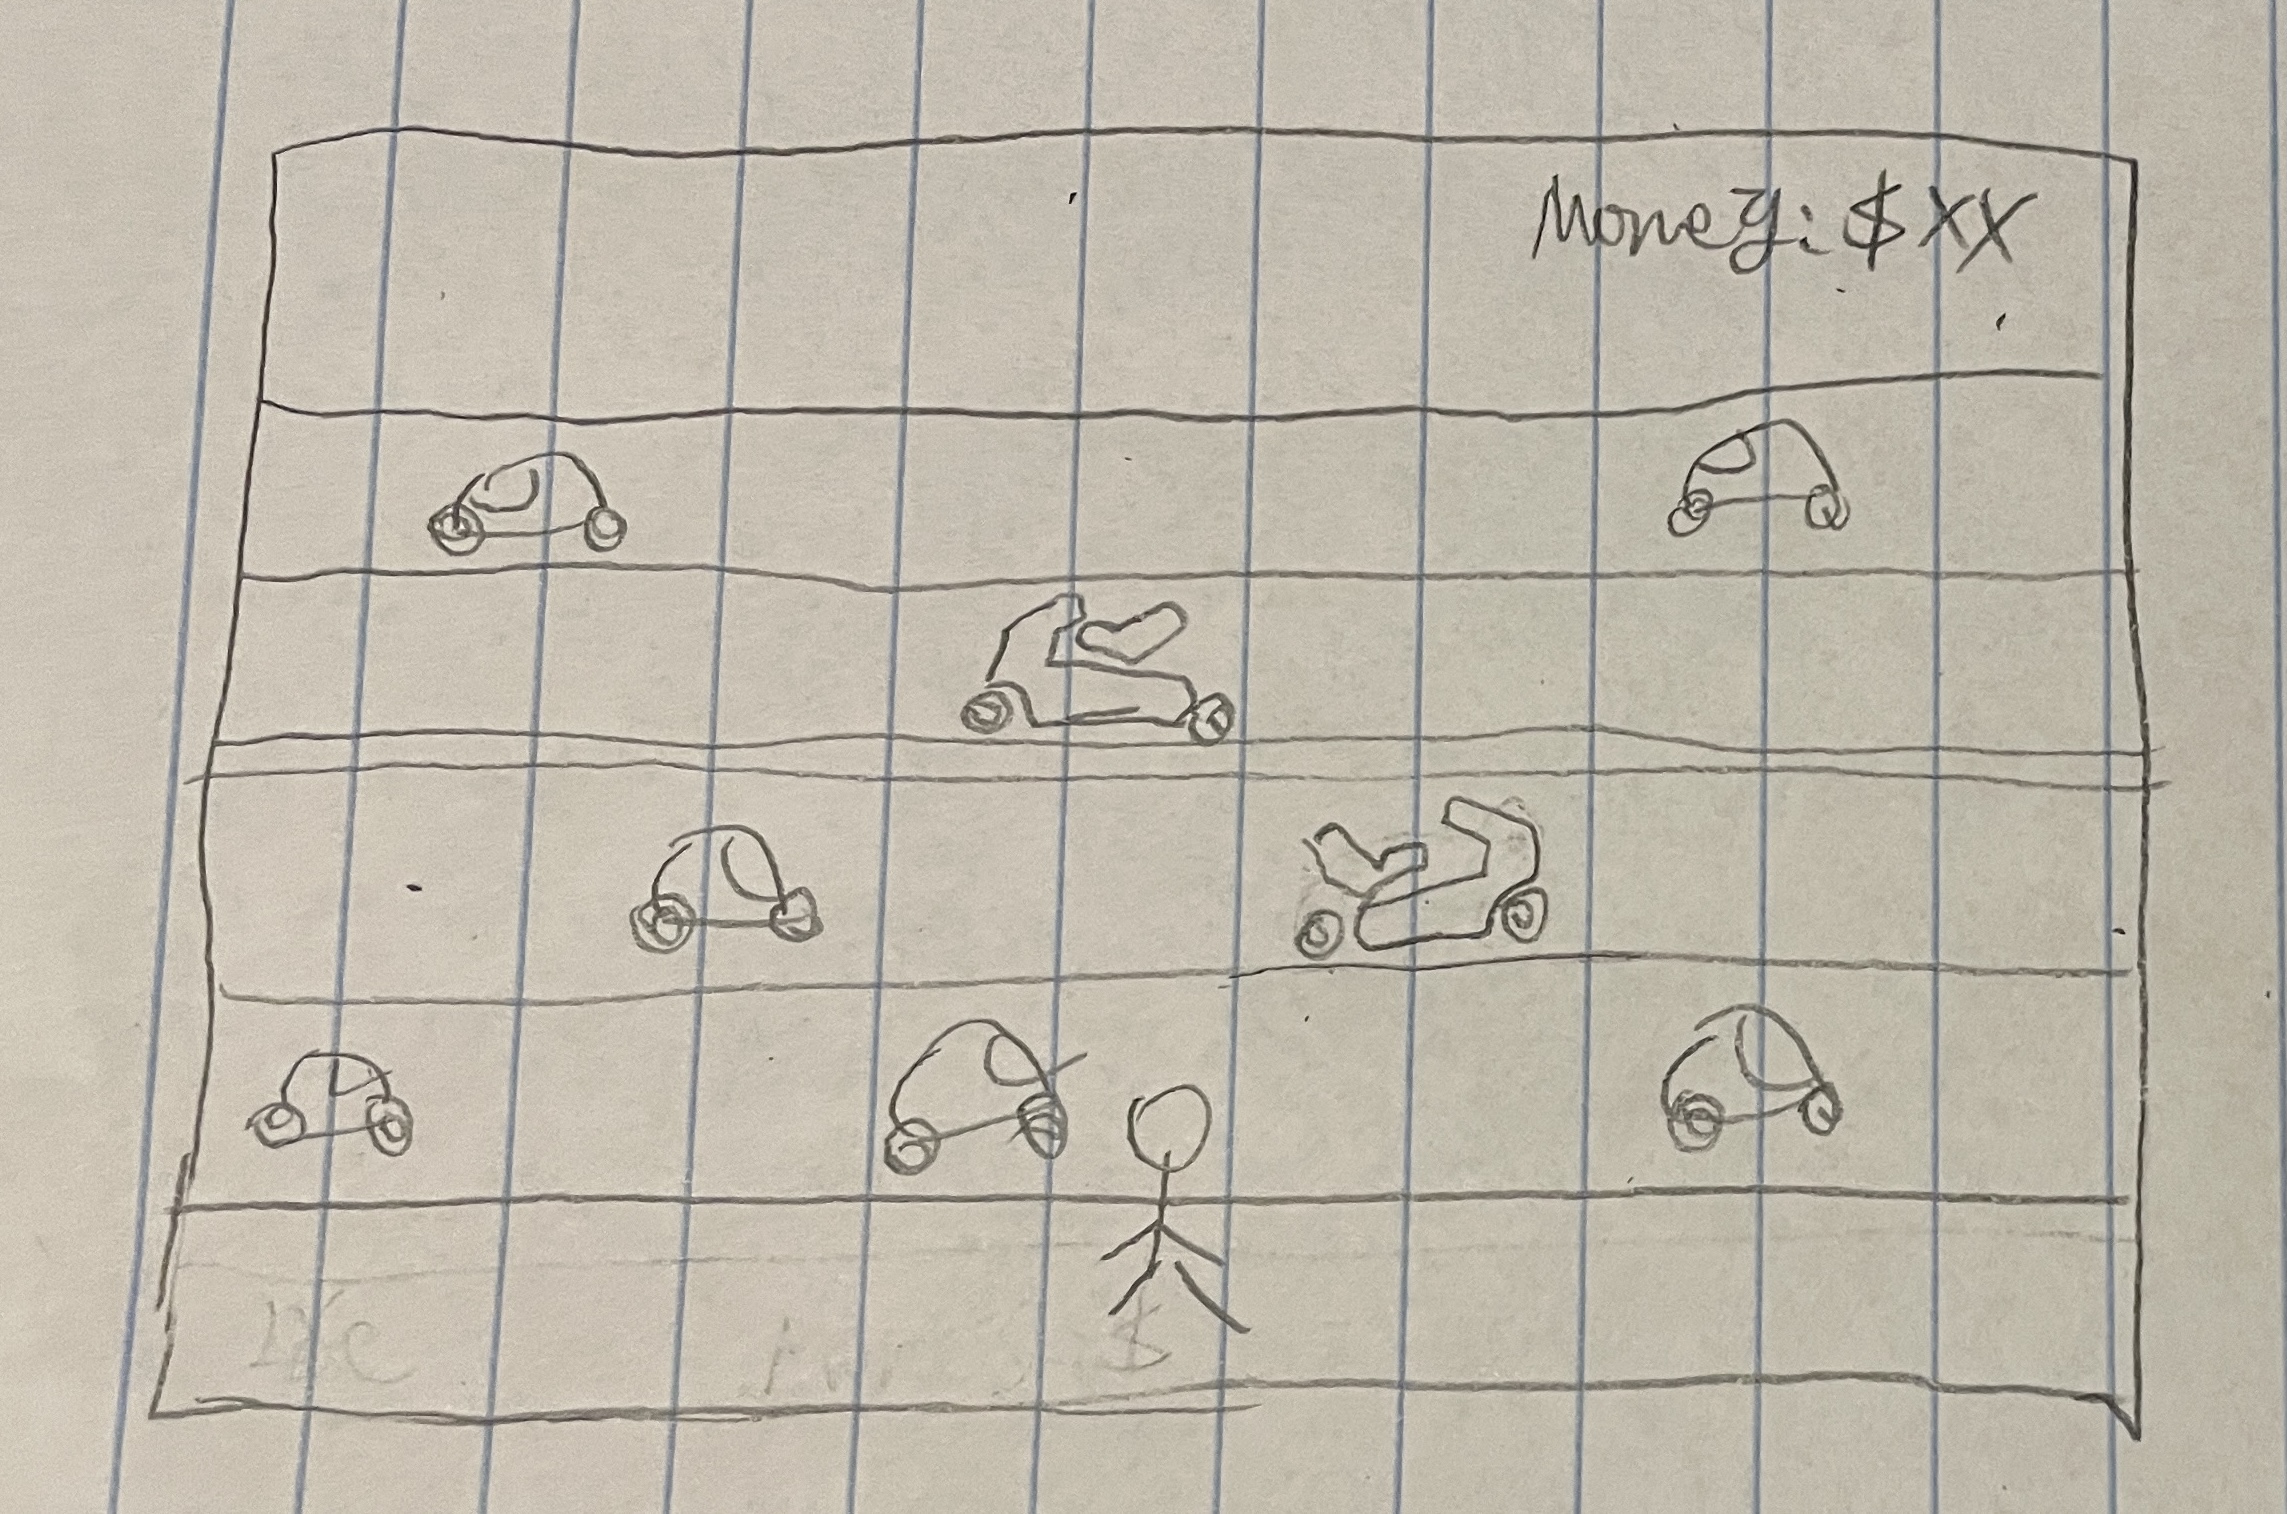 Money: $XX